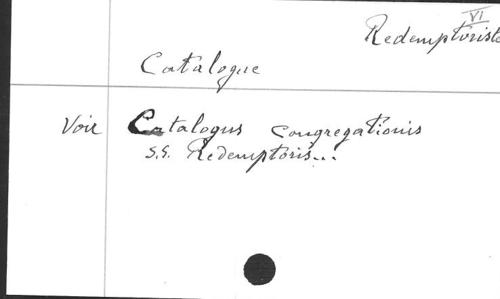 VI
Redemptoriste
Catalogue
Voir Catalogus Congregationis
S.S. Redemptoris...